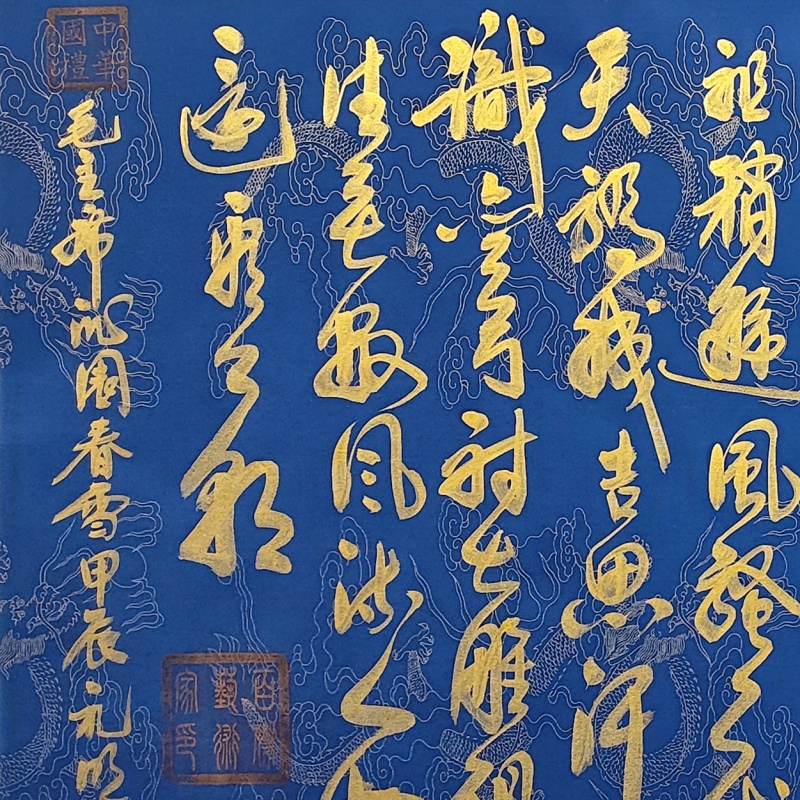 祖稍遜風騷一代
天驕成吉思汗
識彎弓射大雕俱
往矣數風流人物
還看今朝
毛主席沁園春雪甲辰礼明
中華國禮
藝術家印